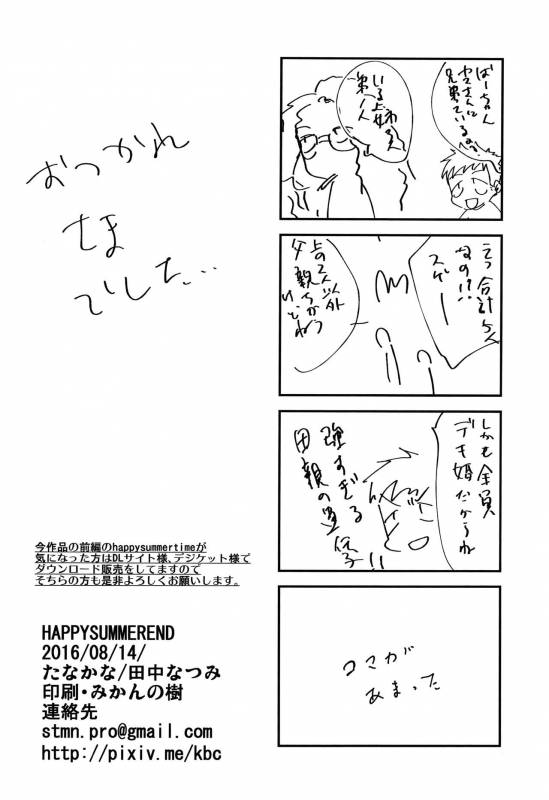 ばーちゃん
やすさんに
兄弟ているの?
いる上姉2人
弟1人
えっ合計5人
なの!?
スゲー
上の2人以外
父親ちがう
けどね
しかも全員
デキ婚だからね
強すぎる
母親の遺伝子!!
コマが
あまった
おつかれ
さま
でした...
今作品の前編のhappysummertimeが
気になった方はDLサイト様、デジケット様で
ダウンロード販売をしてますので
そちらの方も是非よろしくお願いします。
HAPPYSUMMEREND
2016/08/14/
たなかな/田中なつみ
印刷・みかんの樹
連絡先
stmn.pro@gmail.com
http://pixiv.me/kbc